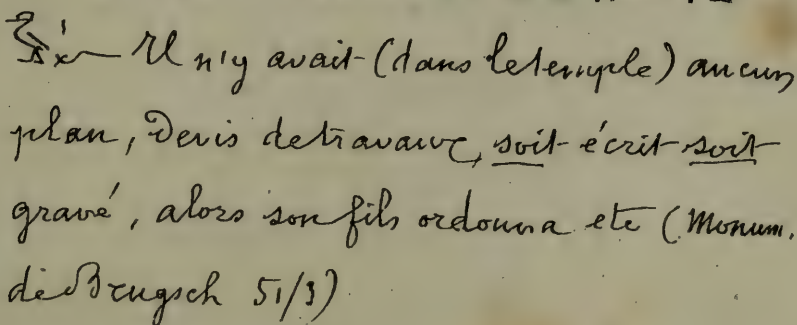 Il n'y avait (dans le temple) aucun
plan, Devis de travaux, soit écrit soit
gravé, alors son fils ordonna etc (Monum.
de Brugsch 51/3)